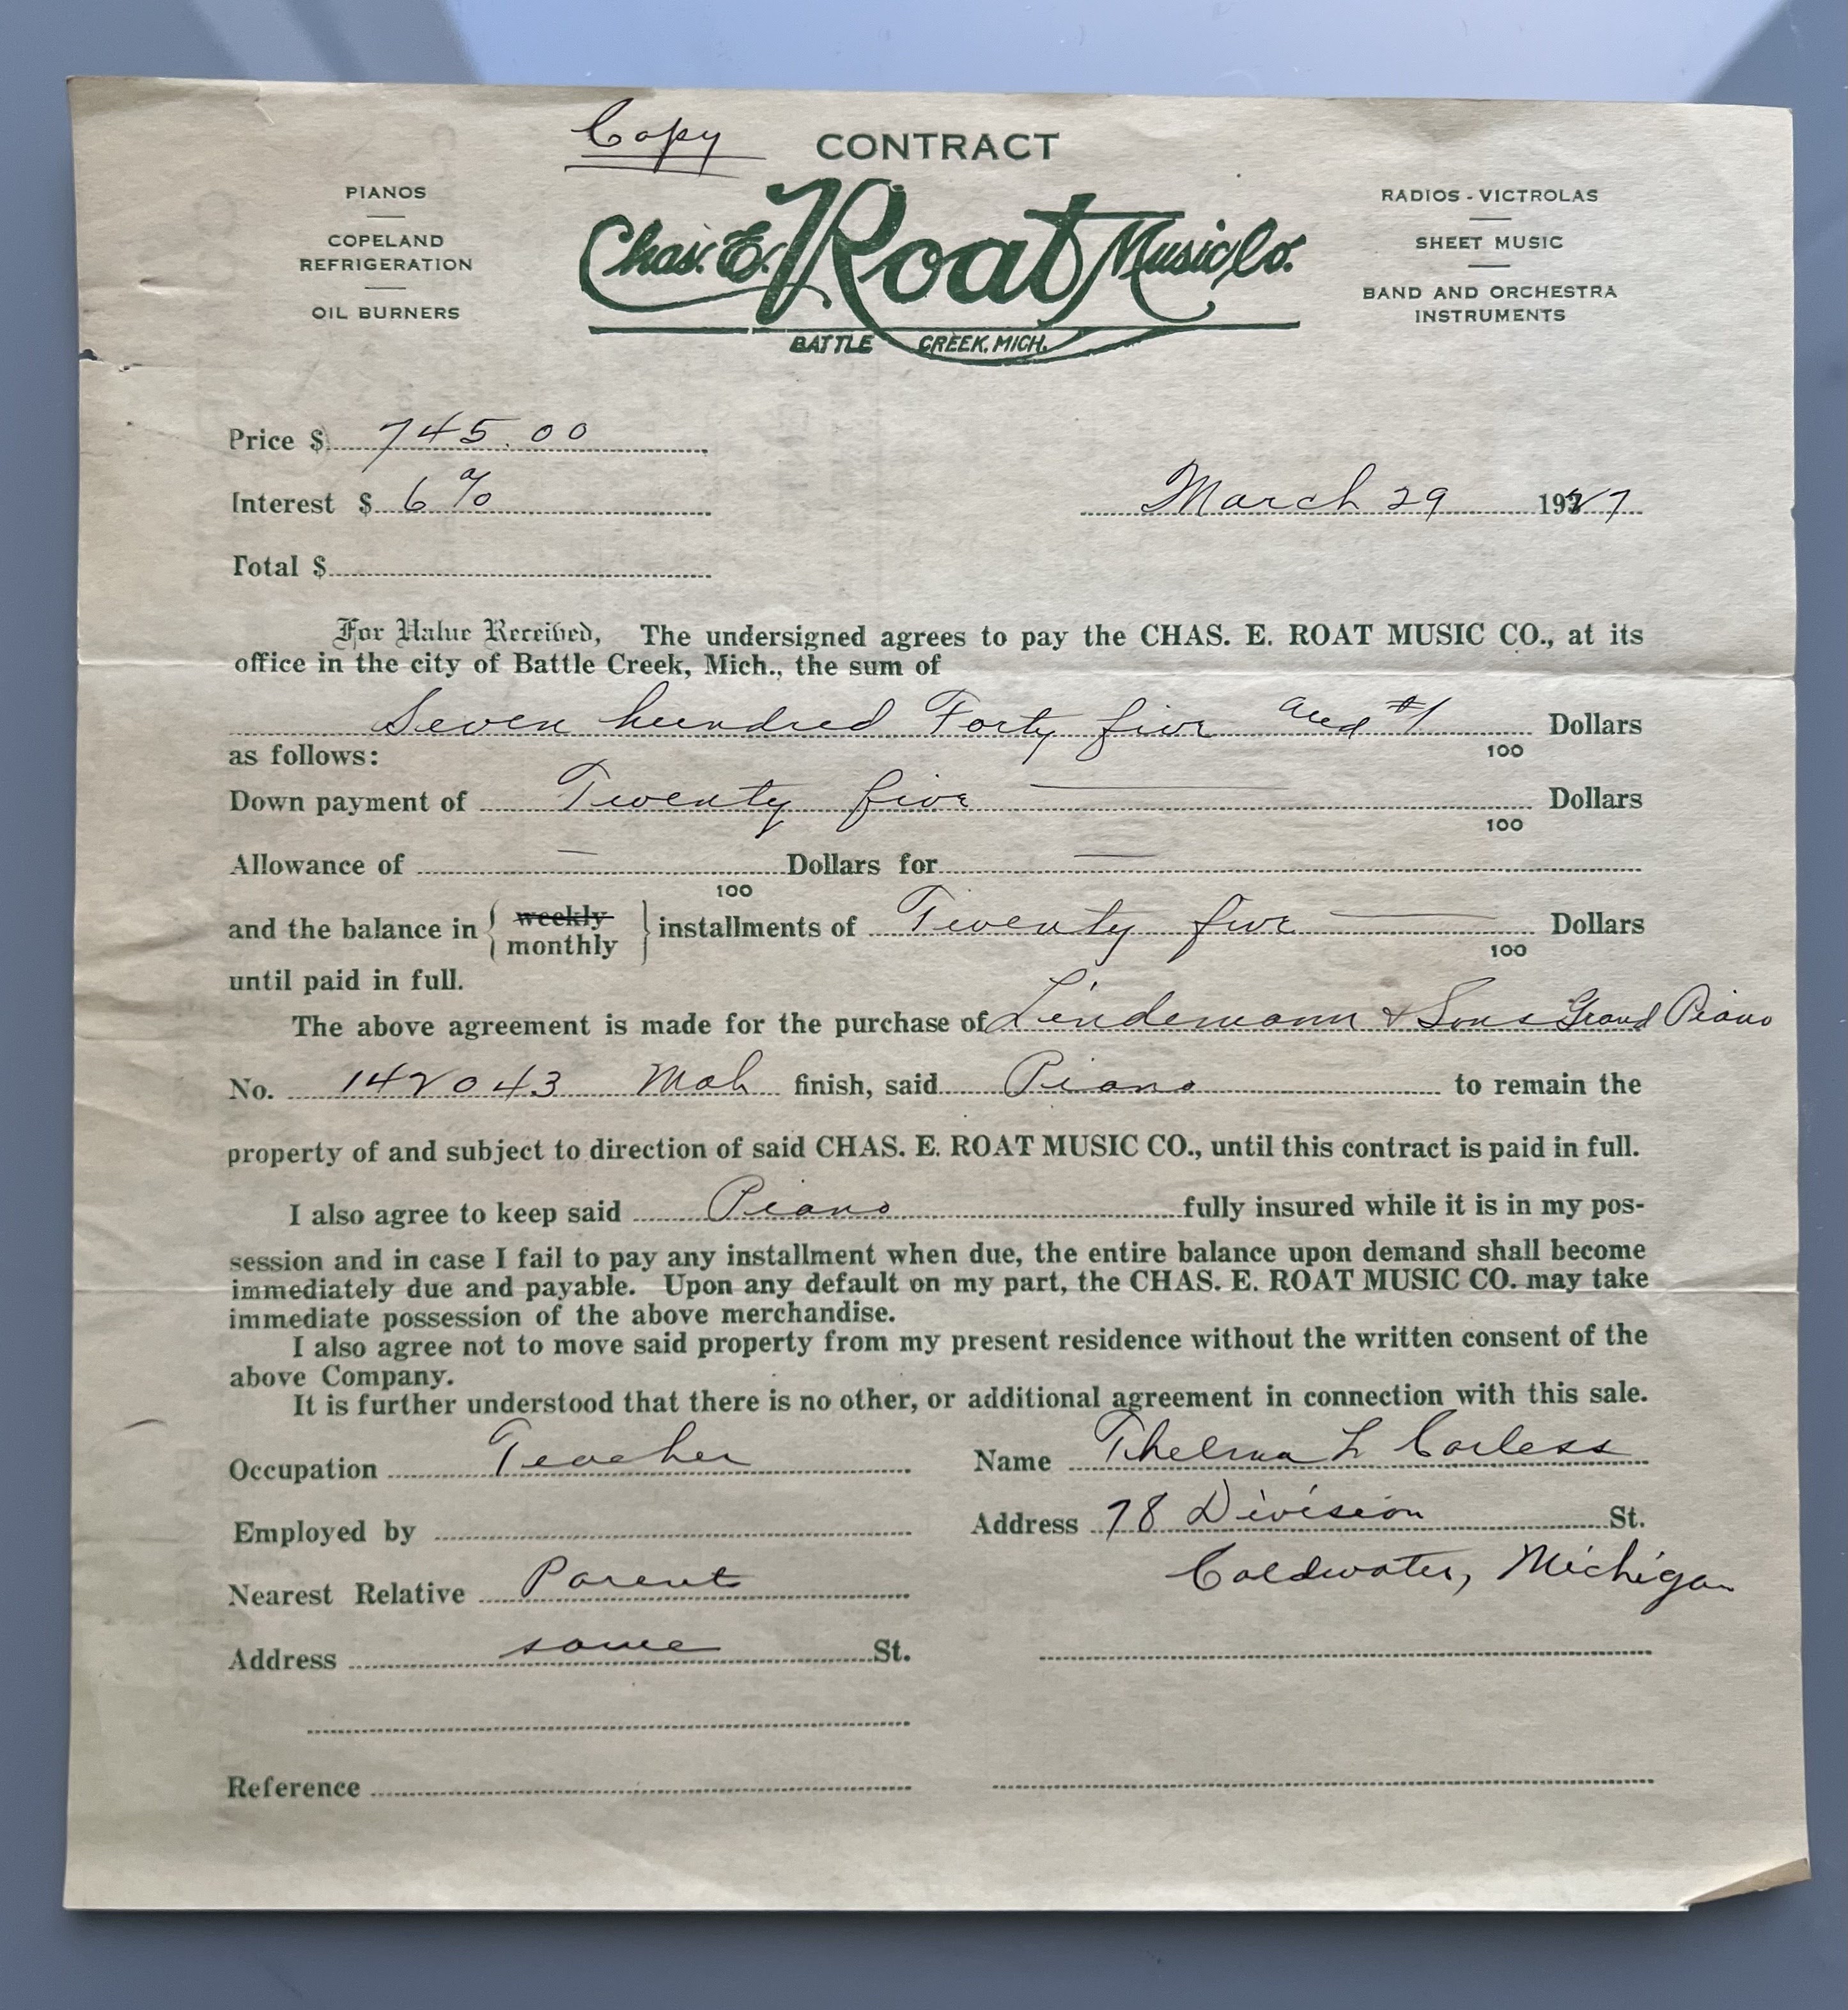 Copy
CONTRACT
PIANOS
COPELAND
REFRIGERATION
OIL BURNERS
Chas. E. Roat Music Co.
BATTLE CREEK, MICH.
RADIOS - VICTROLAS
SHEET MUSIC
BAND AND ORCHESTRA
INSTRUMENTS
Price $ 745.00
Interest $ 6%
March 29 1927
Total $
For Value Received, The undersigned agrees to pay the CHAS. E. ROAT MUSIC CO., at its
office in the city of Battle Creek, Mich., the sum of
Seven hundred Forty five and Dollars
100
as follows:
Down payment of Twenty five Dollars
100
Allowance of — Dollars for —
100
and the balance in { weekly monthly } installments of Twenty five Dollars
100
until paid in full.
The above agreement is made for the purchase of Lindemann & Sons Grand Piano
No. 142043 Mah finish, said Piano to remain the
property of and subject to direction of said CHAS. E. ROAT MUSIC CO., until this contract is paid in full.
I also agree to keep said Piano fully insured while it is in my pos-
session and in case I fail to pay any installment when due, the entire balance upon demand shall become
immediately due and payable. Upon any default on my part, the CHAS. E. ROAT MUSIC CO. may take
immediate possession of the above merchandise.
I also agree not to move said property from my present residence without the written consent of the
above Company.
It is further understood that there is no other, or additional agreement in connection with this sale.
Occupation Teacher
Name Thelma L Corless
Employed by
Address 78 Division St.
Coldwater, Michigan
Nearest Relative Parents
Address same St.
Reference